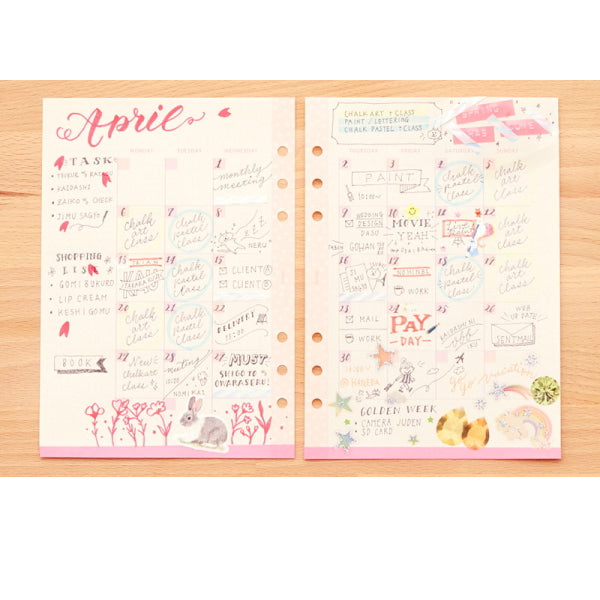 April
MONDAY TUESDAY WEDNESDAY
TASK
KAIDASHI
ZAIKO CHECK
SHOPPING
LIST
GOMIBUKURO
LIP CREAM
KESHIGOMU
BOOK
1
monthly
meeting
6
Chalk
art
Class
7
Chalk
pastel
Class
8
NERU
13
14
Chalk
pastel
Class
15
CLIENT A
CLIENT B
20
Chalk
art
Class
21
Chalk
pastel
Class
22
DELIVERY
27
New
Chalkart
Class
28
meeting
NOMIKAI
MUST
SHIGOTO
OWARASERU!
CHALK ART CLASS
PAINT / LETTERING
CHALK PASTEL CLASS
SPRING
HAS COME
THURSDAY FRIDAY SATURDAY SUNDAY
2
3
PAINT
4
Chalk
pastel
Class
5
Chalk
art
Class
9
WEDDING
DESIGN
DASU
10
MOVIE
YEAH
11
12
Chalk
art
Class
16
17
WORK
18
Chalk
pastel
Class
19
Chalk
art
Class
23
MAIL
WORK
24
PAY
DAY
25
26
WEB
UP DATE
SENTMAIL
30
HANEDA
GOLDEN WEEK
CAMERA JUDEN
SD CARD